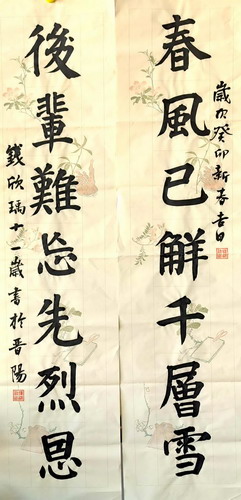 歲次癸卯新春吉日
春風已解千層雪
後輩難忘先烈恩
錢欣瑀十一歲書於晋陽